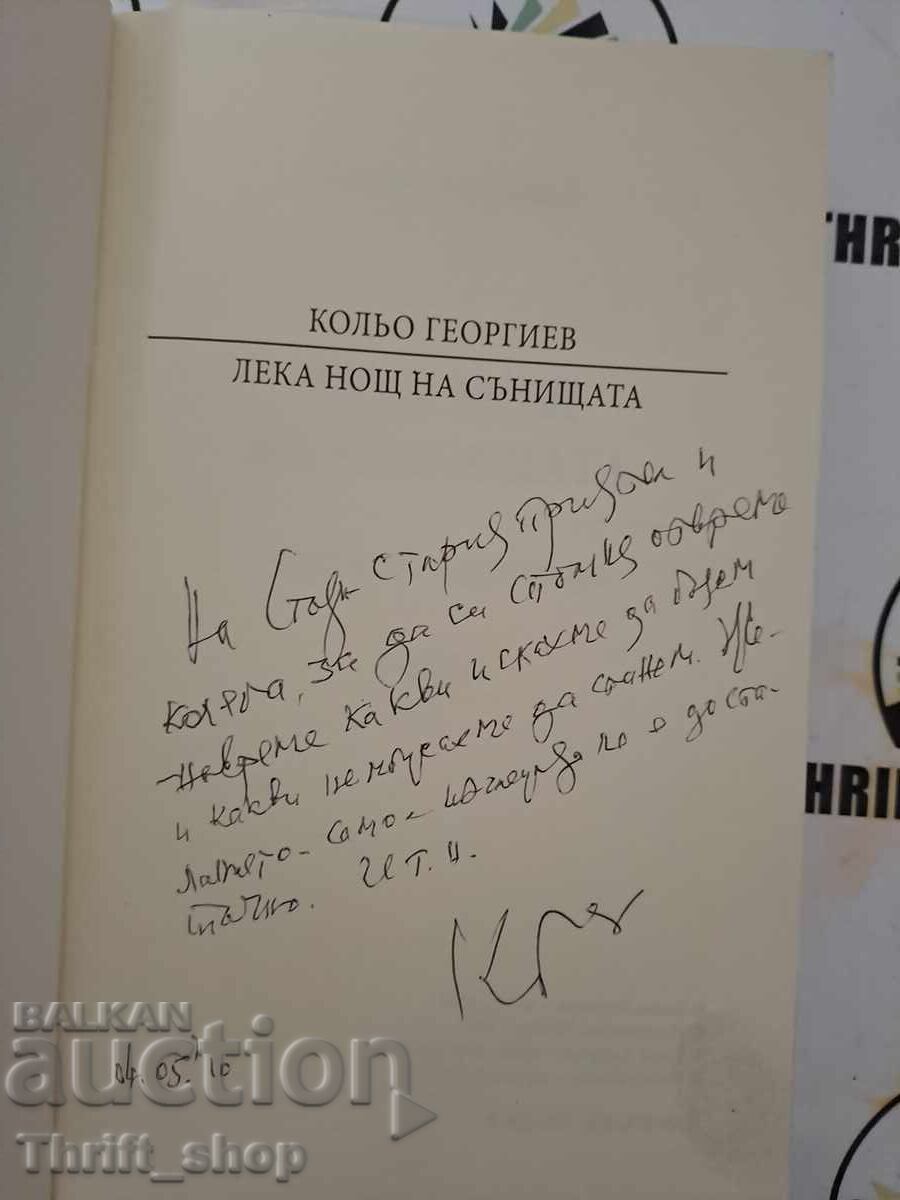 КОЛЬО ГЕОРГИЕВ
ЛЕКА НОЩ НА СЪНИЩАТА
На стария приятел и
колега, за да си спомня отвреме
-навреме какви искахме да бъдем
и какви не можахме да станем. Же-
ланието - само доста-
тъчно. И т.н.
04.05.10
THRI
THRI
BALKAN
auction
Thrift_shop